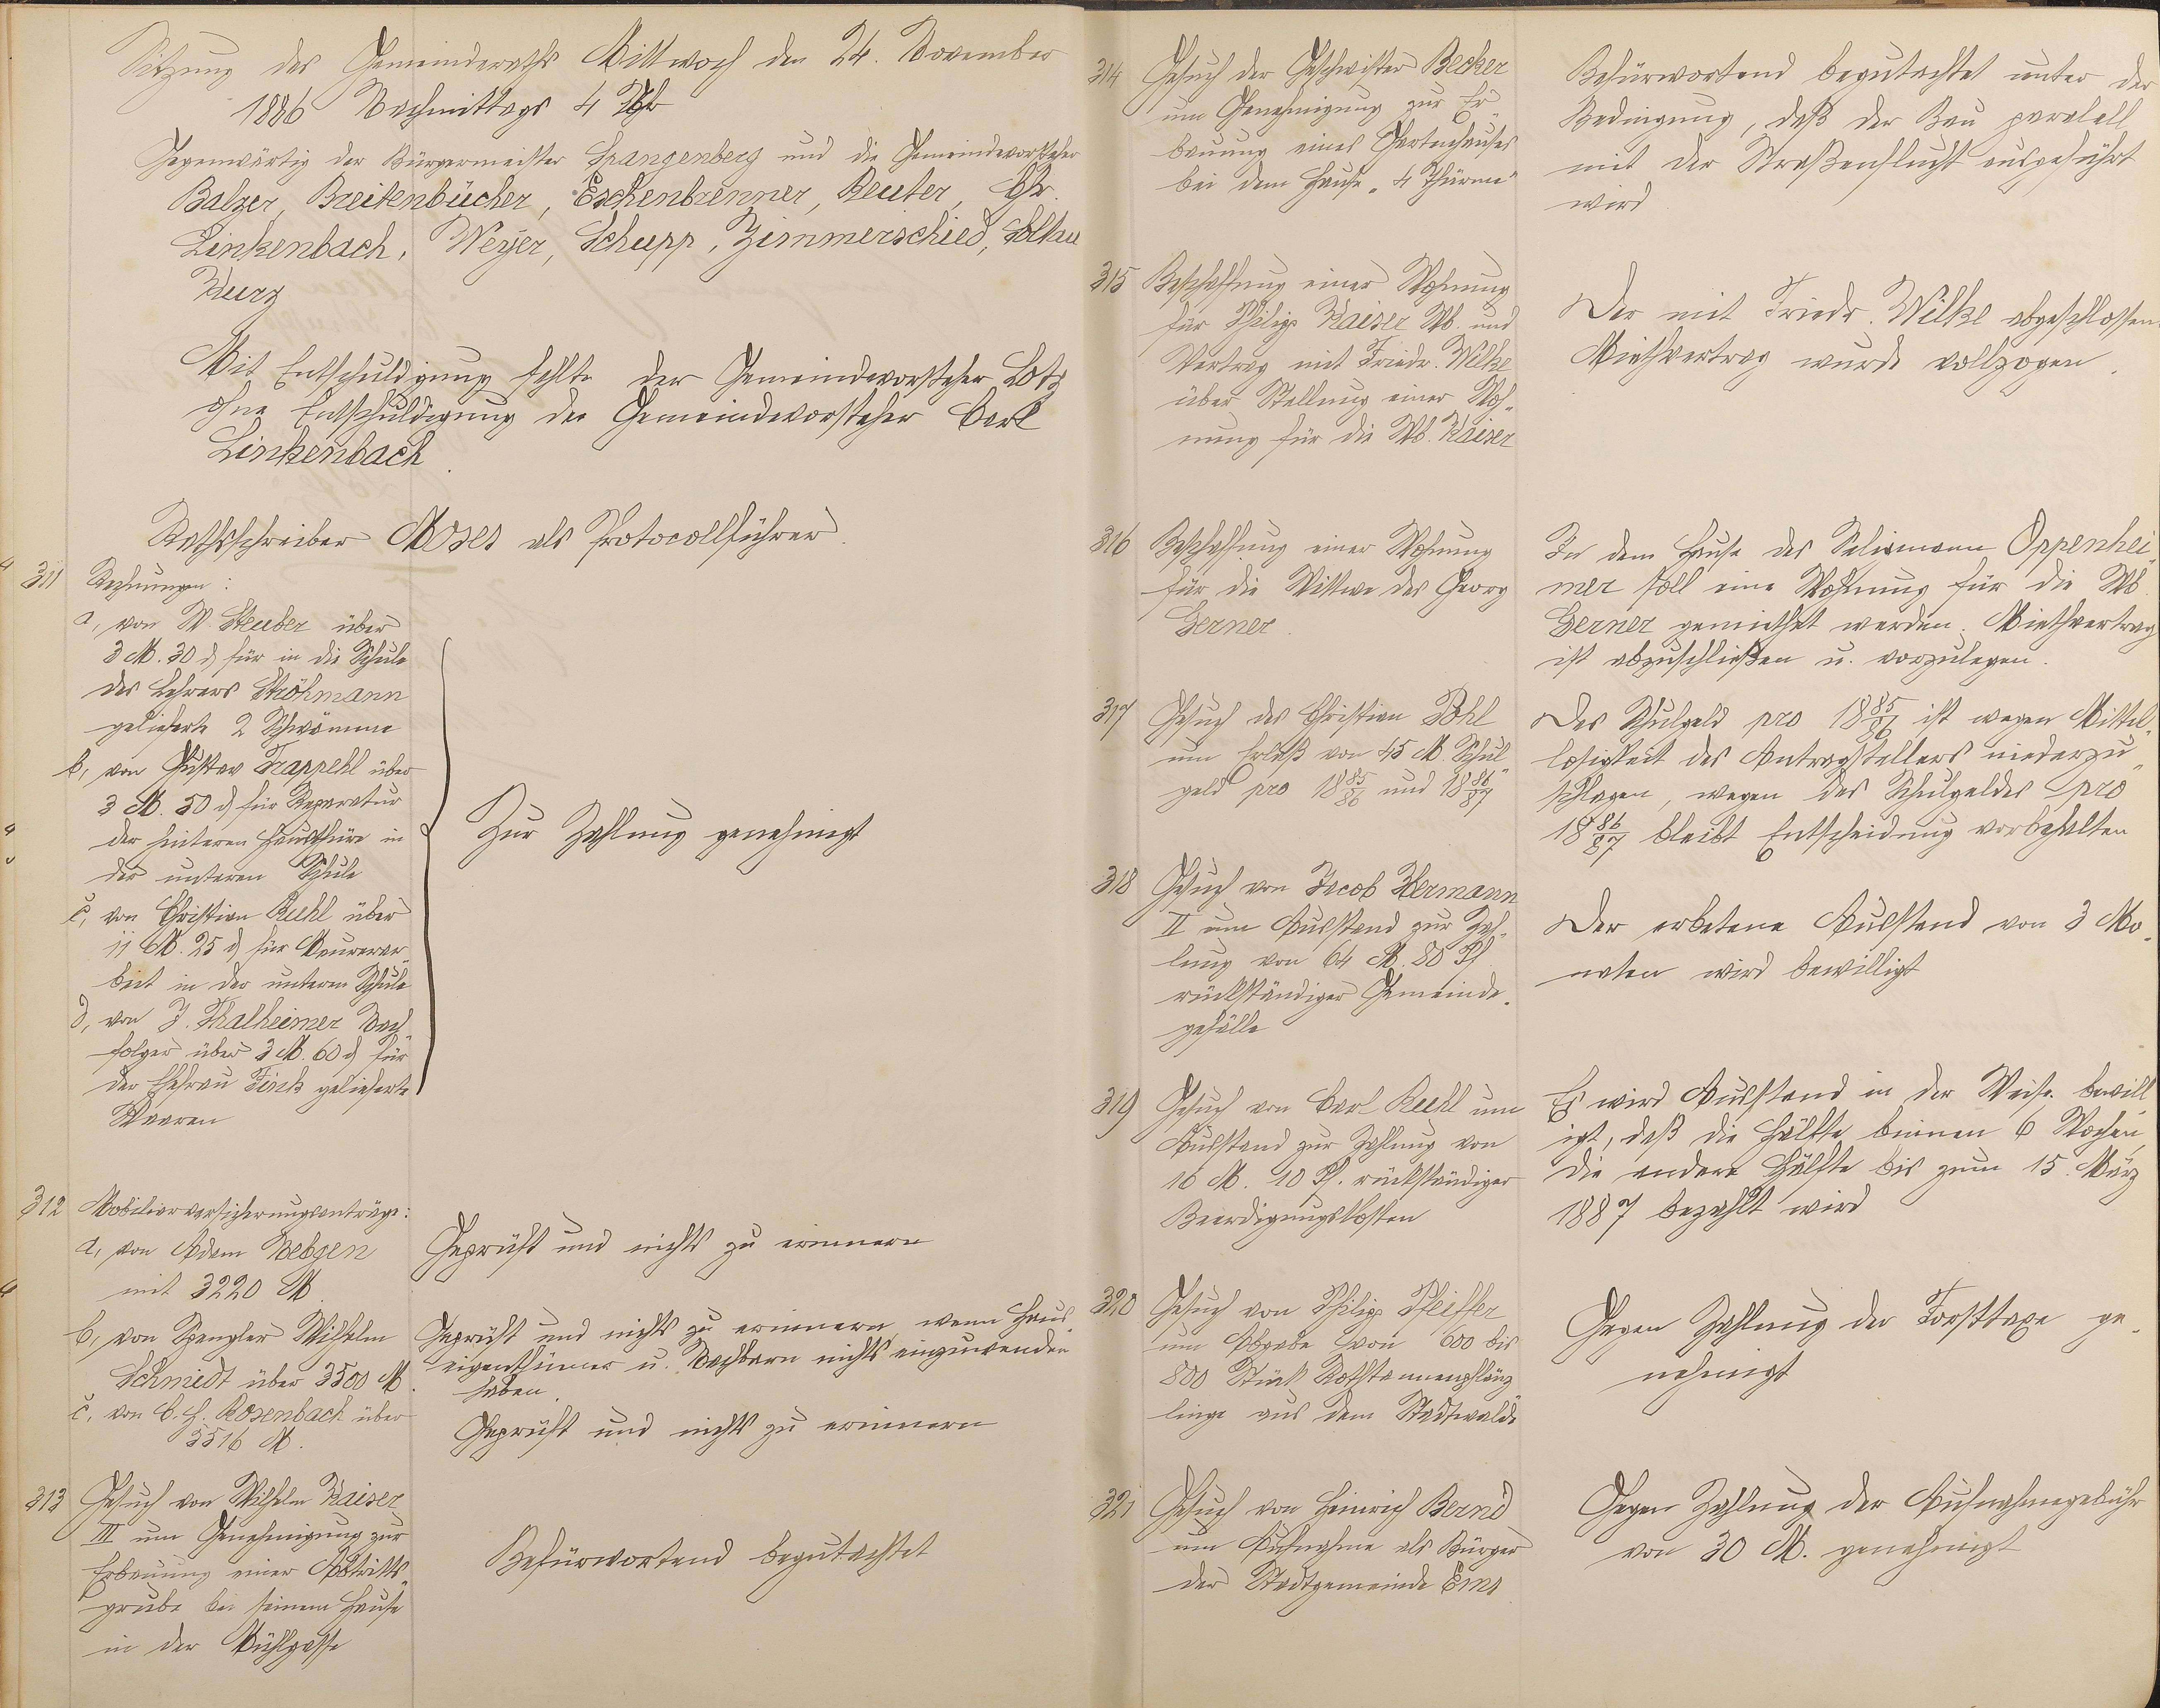 Sitzung des Gemeinderaths Mittwoch den 24. November
1886 Nachmittags 4 Uhr
Gegenwärtig der Bürgermeister Spangenberg und die Gemeindevorsteher
Balzer, Breitenbücher, Eschenbrenner, Reuter, Chr.
Linkenbach, Weyer, Schupp, Zimmerschied, Soltau
Kurz
Mit Entschuldigung fehlte der Gemeindevorsteher Lotz
ohne Entschuldigung der Gemeindevorsteher Carl
Linkenbach.
Rathsschreiber Moses als Protocollführer.
311 Rechnungen:
a, von W. Steuber über
3 M. 30 d für in die Schule
des Lehrers Ströhmann
gelieferte 2 Schwämme
b, von Gustav Trappehl über
3 M. 50 d für Reparatur
der hinteren Hausthüre in
der unteren Schule
c, von Christian Ruhl über
11 M. 25 d für Maurerar„
beit in der unteren Schule
d, von J. Thalheimer Nach„
folger über 3 M. 60 d für
der Ehefrau Fink gelieferte
Waaren
Zur Zahlung genehmigt
312 Mobiliarversicherungsanträge:
a, von Adam Nebgen
mit 3220 M.
Geprüft und nichts zu erinnern
b, von Spengler Wilhelm
Schmidt über 3500 M.
Geprüft und nichts zu erinnern wenn Haus„
eigenthümer u. Nachbarn nichts einzuwenden
haben.
c, von C. H. Rosenbach über
3516 M.
Geprüft und nichts zu erinnern
313 Gesuch von Wilhelm Kaiser
III um Genehmigung zur
Erbauung einer Abtritts„
grube bei seinem Hause
in der Kühlgasse
Befürwortend begutachtet
314 Gesuch der Geschwister Becker
um Genehmigung zur Er„
bauung eines Gartenhauses
bei dem Hause „4 Thürme“
Befürwortend begutachtet unter der
Bedingung, daß der Bau paralell
mit der Straßenflucht ausgeführt
wird
315 Beschaffung einer Wohnung
für Philipp Kaiser Wb. und
Vertrag mit Friedr. Wilke
über Stellung einer Woh„
nung für die Wb. Kaiser
Der mit Friedr. Wilke abgeschlossene
Miethvertrag wurde vollzogen.
316 Beschaffung einer Wohnung
für die Wittwe des Georg
Gerner.
In dem Hause des Seligmann Oppenhei„
mer soll eine Wohnung für die Wb.
Gerner gemiethet werden. Miethvertrag
ist abzuschließen u. vorzulegen.
317 Gesuch des Christian Pohl
um Erlaß von 45 M. Schul„
geld pro 1885/86 und 1886/87
Das Schulgeld pro 1885/86 ist wegen Mittel„
losigkeit des Antragstellers niederzu„
schlagen, wegen des Schulgeldes pro
1886/87 bleibt Entscheidung vorbehalten
318 Gesuch von Jacob Hermann
II um Ausstand zur Zah„
lung von 64 M. 80 Pf.
rückständiger Gemeinde„
gefälle
Der erbetene Ausstand von 3 Mo„
naten wird bewilligt
319 Gesuch von Carl Ruhl um
Ausstand zur Zahlung von
16 M. 10 Pf. rückständiger
Beerdigungskosten
Es wird Ausstand in der Weise bewill„
igt, daß die Hälfte binnen 6 Wochen,
die andere Hälfte bis zum 15. März
1887 bezahlt wird
320 Gesuch von Philipp Pfeiffer
um Abgabe von 600 bis
800 Stück Rothtannenpflänz„
linge aus dem Stadtwalde
Gegen Zahlung der Forsttaxe ge„
nehmigt
321 Gesuch von Heinrich Bernd
um Aufnahme als Bürger
der Stadtgemeinde Ems
Gegen Zahlung der Aufnahmegebühr
von 30 M. genehmigt